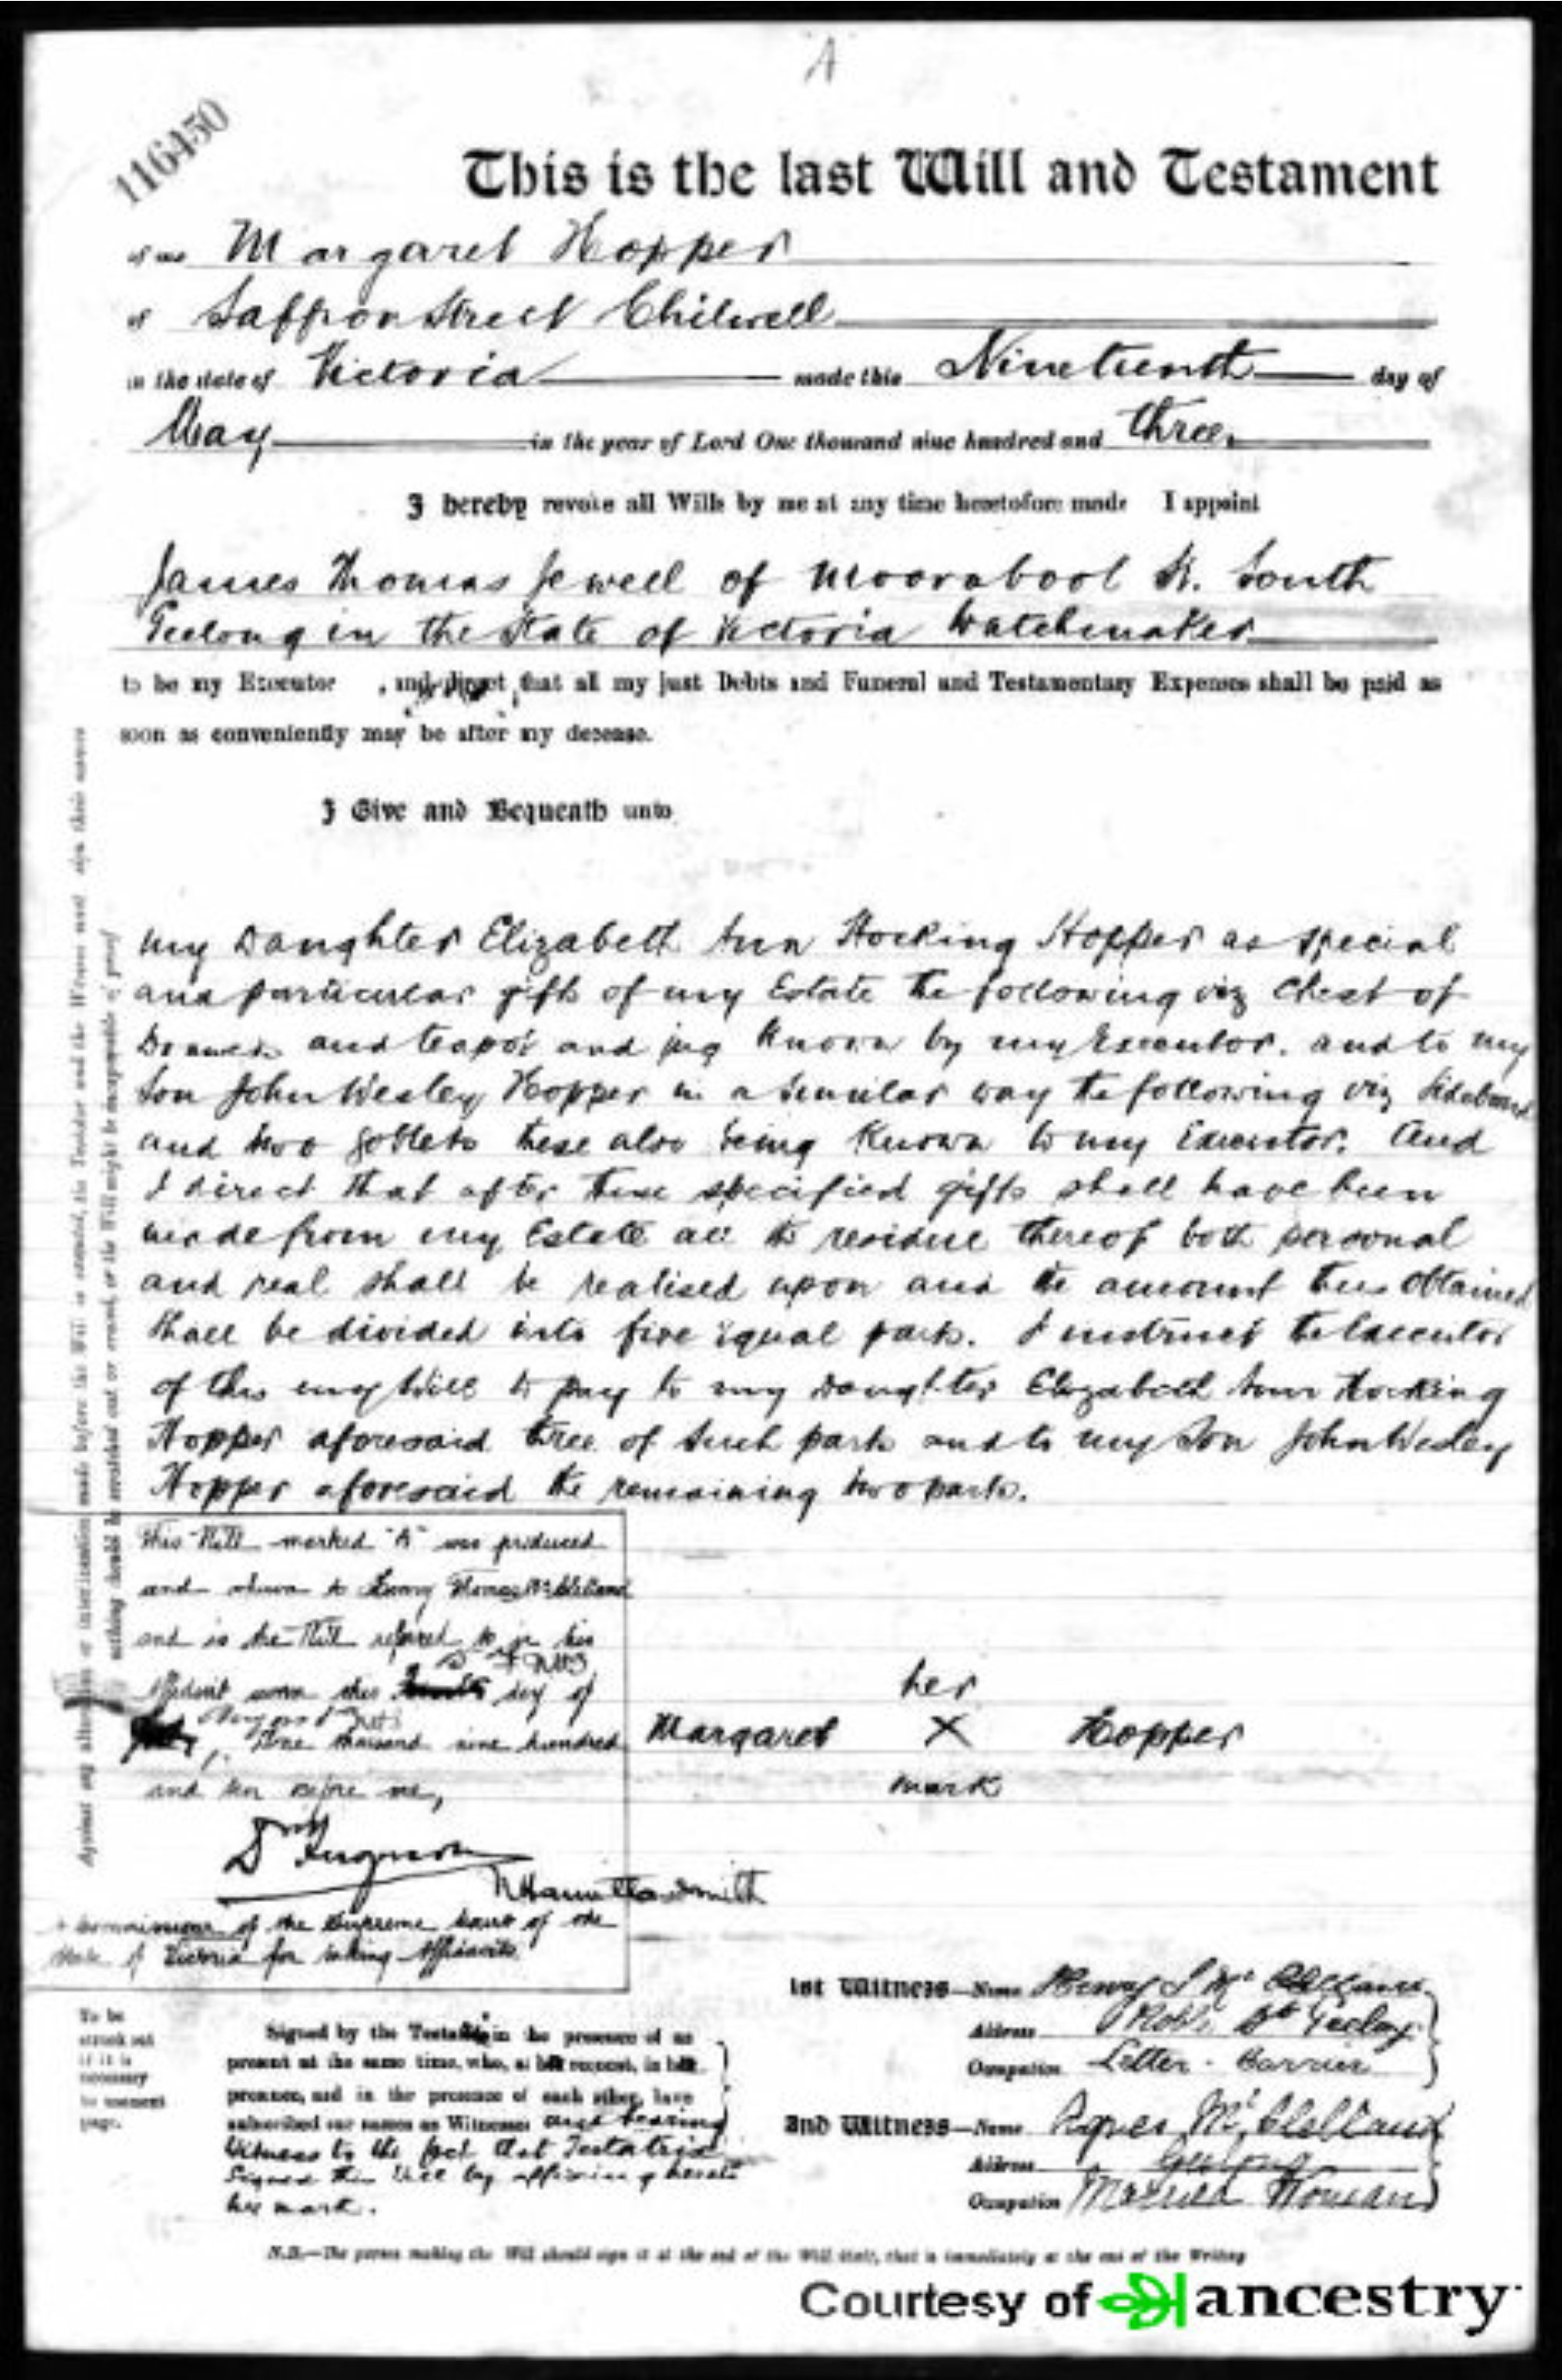 A
116450
This is the last Will and Testament
of me Margaret Hopper
of Saffron Street Chilwell
in the state of Victoria made this Nineteenth day of
May in the year of Lord One thousand nine hundred and three.
I hereby revoke all Wills by me at any time heretofore made I appoint
James Thomas Jewell of Moorabool St. South
Geelong in the State of Victoria Watchmaker
to be my Executor , and direct that all my just Debts and Funeral and Testamentary Expenses shall be paid as
soon as conveniently may be after my decease.
I Give and Bequeath unto
my Daughter Elizabeth Ann Hocking Hopper as special
and particular gifts of my Estate the following viz Chest of
Drawers and teapot and jug known by my Executor. and to my
Son John Wesley Hopper in a similar way the following viz Sideboard
and two goblets these also being known to my Executor. And
I direct that after these specified gifts shall have been
made from my Estate all the residue thereof both personal
and real shall be realised upon and the amount thus obtained
shall be divided into five equal parts. I instruct the Executor
of this my Will to pay to my Daughter Elizabeth Ann Hocking
Hopper aforesaid three of such parts and to my Son John Wesley
Hopper aforesaid the remaining two parts.
This Will marked "A" was produced
and shown to Henry Thomas McClelland
and is the Will referred to in his
Affidavit sworn this day of
August One thousand nine hundred
and ten before me,
D Ferguson
A Commissioner of the Supreme Court of the
State of Victoria for taking Affidavits
her
Margaret X Hopper
mark
1st Witness—Name Henry McClelland
Address St Geelong
Occupation Letter-Carrier
2nd Witness—Name Agnes McClelland
Address Geelong
Occupation Married Woman
To be
struck out
if it is
necessary
page.
Signed by the Testatrix in the presence of us
present at the same time, who, at her request, in her
presence, and in the presence of each other, have
subscribed our names as Witnesses and bearing
witness to the fact that Testatrix
signed this Will by affixing hereto
her mark.
Against any alterations or interlineation made before the Will is executed, the Testator and the Witness must sign their names
nothing should be scratched out or erased, or the Will might be incapable of proof
N.B.—The person making the Will should sign it at the end of the Will itself, that is immediately at the end of the Writing
Courtesy of ancestry